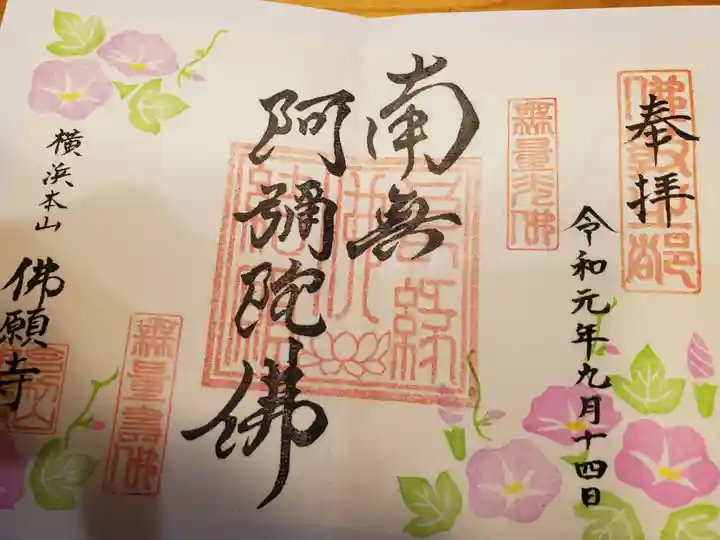 奉拝
令和元年九月十四日
無量光佛
南無
阿彌陀佛
横浜本山
佛願寺
無量壽佛